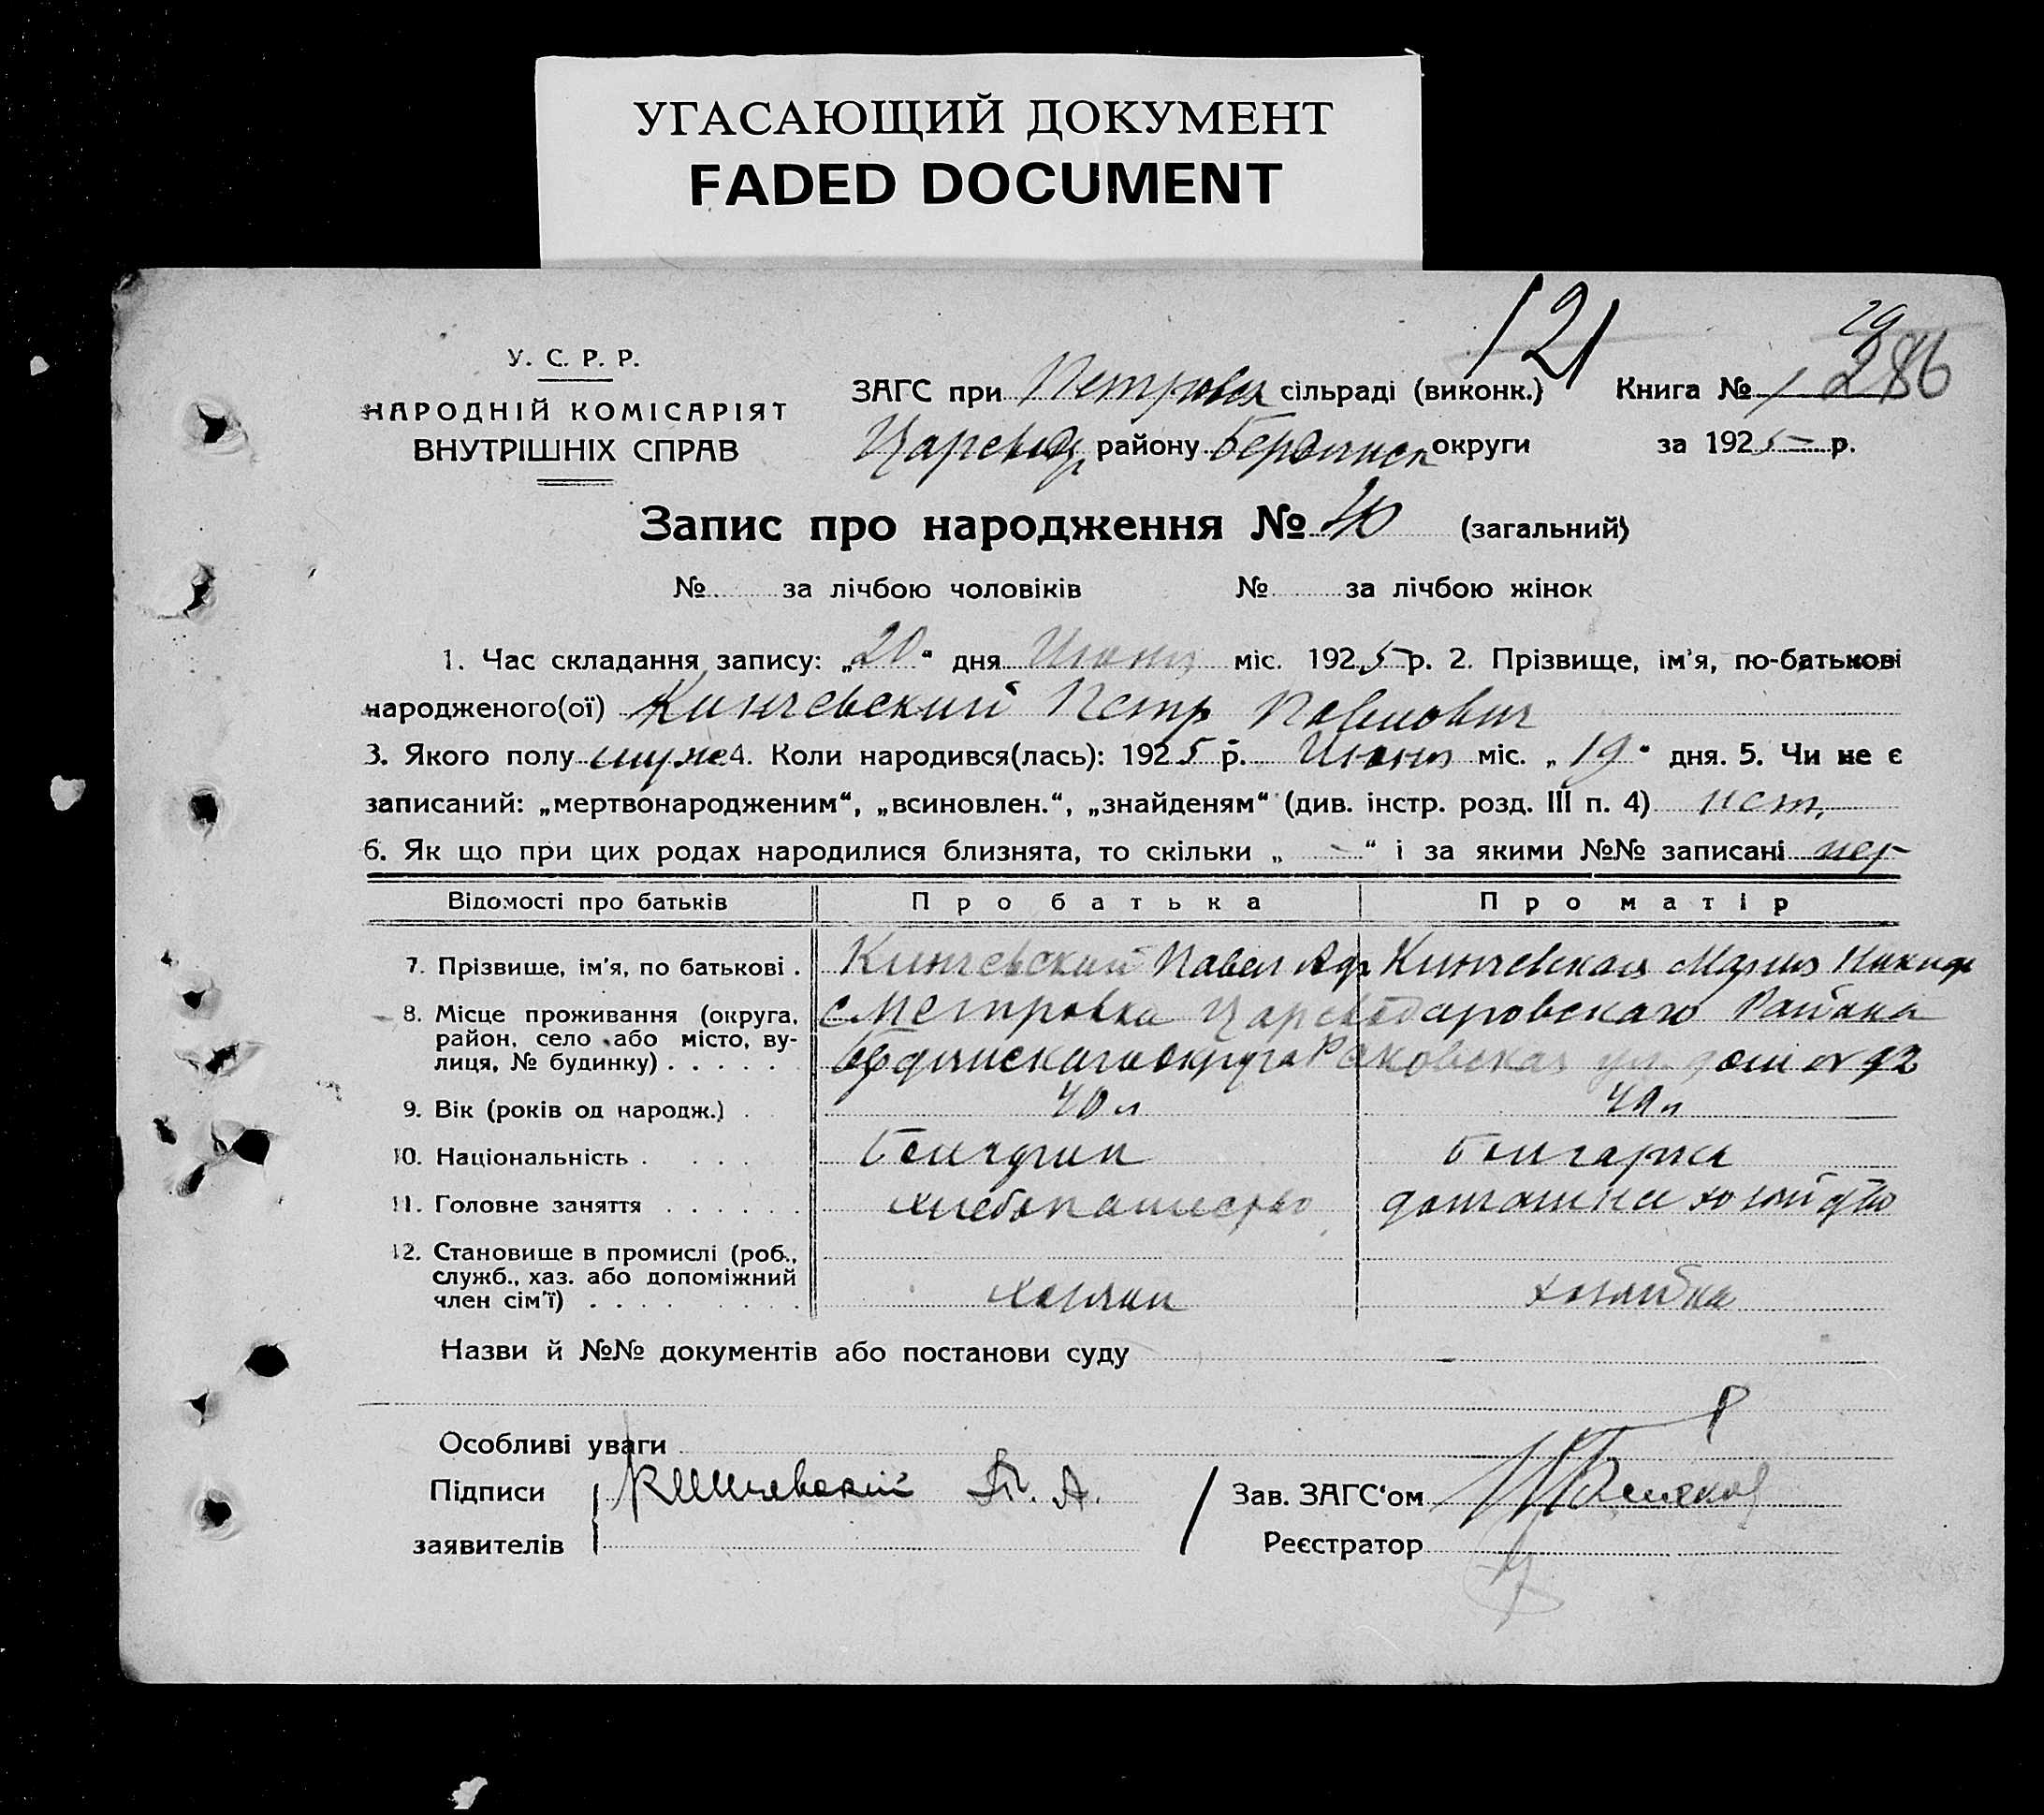 УГАСАЮЩИЙ ДОКУМЕНТ
FADED DOCUMENT
121
29
286
У. С. Р. Р.
НАРОДНІЙ КОМІСАРІЯТ
ВНУТРІШНІХ СПРАВ
ЗАГС при Петровск сільраді (виконк.) Книга № 1
району Бердянск округи за 1925 р.
Запис про народження № 40 (загальний)
№ за лічбою чоловіків № за лічбою жінок
1. Час складання запису: „20“ дня Июня міс. 1925 р. 2. Прізвище, ім'я, по-батькові
народженого(ої) Кинчевский Петр Павлович
3. Якого полу муж 4. Коли народився(лась): 1925 р. Июня міс. „19“ дня. 5. Чи не є
записаний: „мертвонародженим“, „всиновлен.“, „знайденям“ (див. інстр. розд. III п. 4) нет
6. Як що при цих родах народилися близнята, то скільки „ - “ і за якими №№ записані нет
Відомості про батьків Про батька Про матір
7. Прізвище, ім'я, по батькові . Кинчевский Павел Адр Кинчевская Мария Никиф
8. Місце проживання (округа, с Петровка Царедаровскаго Района
район, село або місто, ву-
лиця, № будинку) . . . . . Бердянскаго округа Раковская ул. дом № 92
9. Вік (років од народж.) . 40 л 40 л
10. Національність . . . . Болгарин Болгарка
11. Головне заняття . . . . . . хлебопашество домашнее
12. Становище в промислі (роб.,
служб., хаз. або допоміжний
член сім'ї) . . . . . . . хозяин хозяйка
Назви й №№ документів або постанови суду
Особливі уваги
Підписи Кинчевский П. А. Зав. ЗАГС‘ом
заявителів Реєстратор